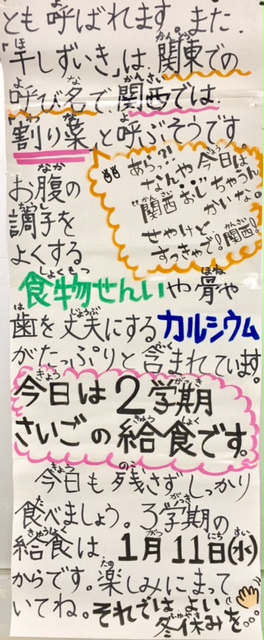 とも呼ばれます。また、
「干しずいき」は、関東での
呼び名で関西では
割り菜と呼ぶそうです。
お腹の
調子を
よくする
あら?!
なんや今日は
関西おじちゃん
かいな。
せやけど
すっきゃで!関西。
食物せんいや骨や
歯を丈夫にするカルシウム
がたっぷりと含まれています。
今日は2学期
さいごの給食です。
今日も残さずしっかり
食べましょう。3学期の
給食は、1月11日(水)
からです。楽しみにまって
いてね。それではよい
冬休みを。